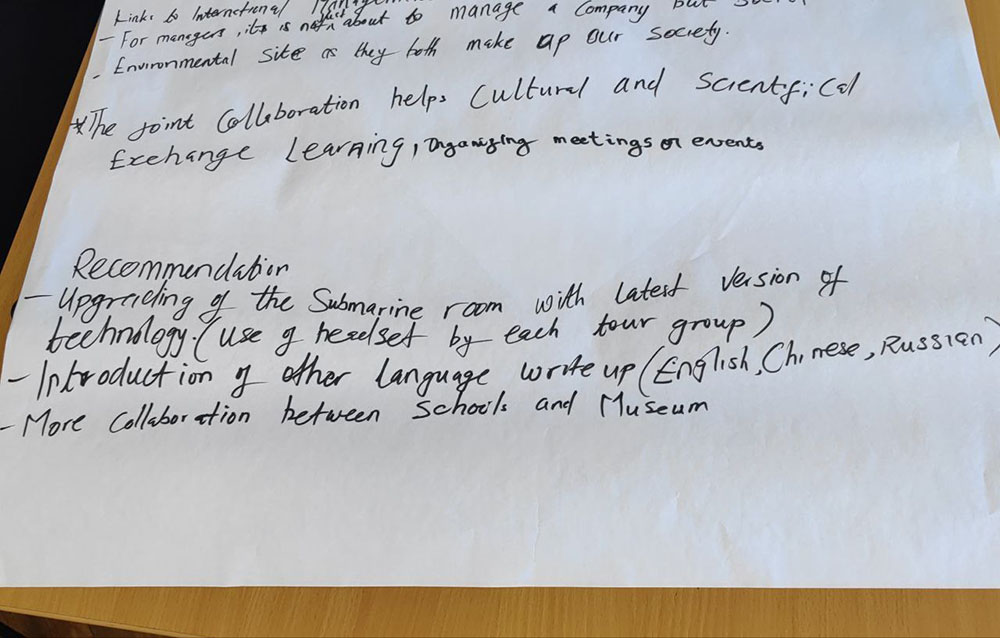 Links to International Management
- For managers, its is not just about to manage a Company but Social
- Environmental Site as they both make up our society.
*The joint Collaboration helps Cultural and Scientifical
Exchange Learning, Organizing meetings or events
Recommendation
- Upgrading of the Submarine room with latest version of
technology. (use of headset by each tour group)
- Introduction of other language write up (English, Chinese, Russian)
- More Collaboration between Schools and Museum